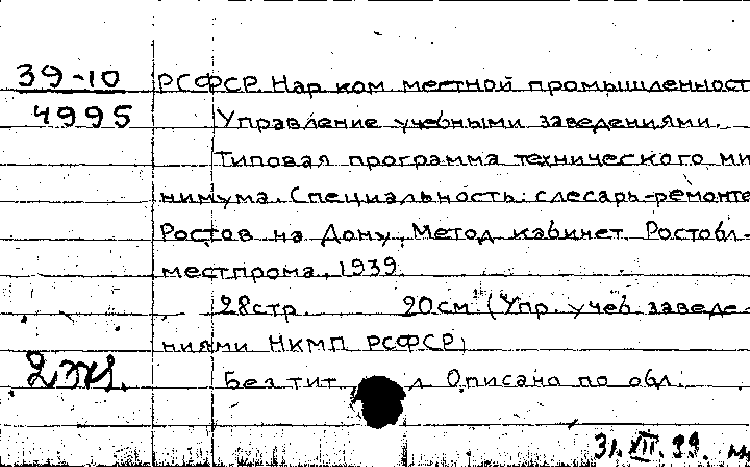 39-10 РСФСР. Нар. ком. местной промышленност
4995 Управление учебными заведениями.
Типовая программа технического ми-
нимума. Специальность: слесарь-ремонте
Ростов на Дону, Метод. кабинет Ростобл-
местпрома, 1939.
28 стр. 20 см. (Упр. учеб. заведе-
ниями НКМП РСФСР)
2 экз. Без тит. л. Описано по обл.
31.XII.39.